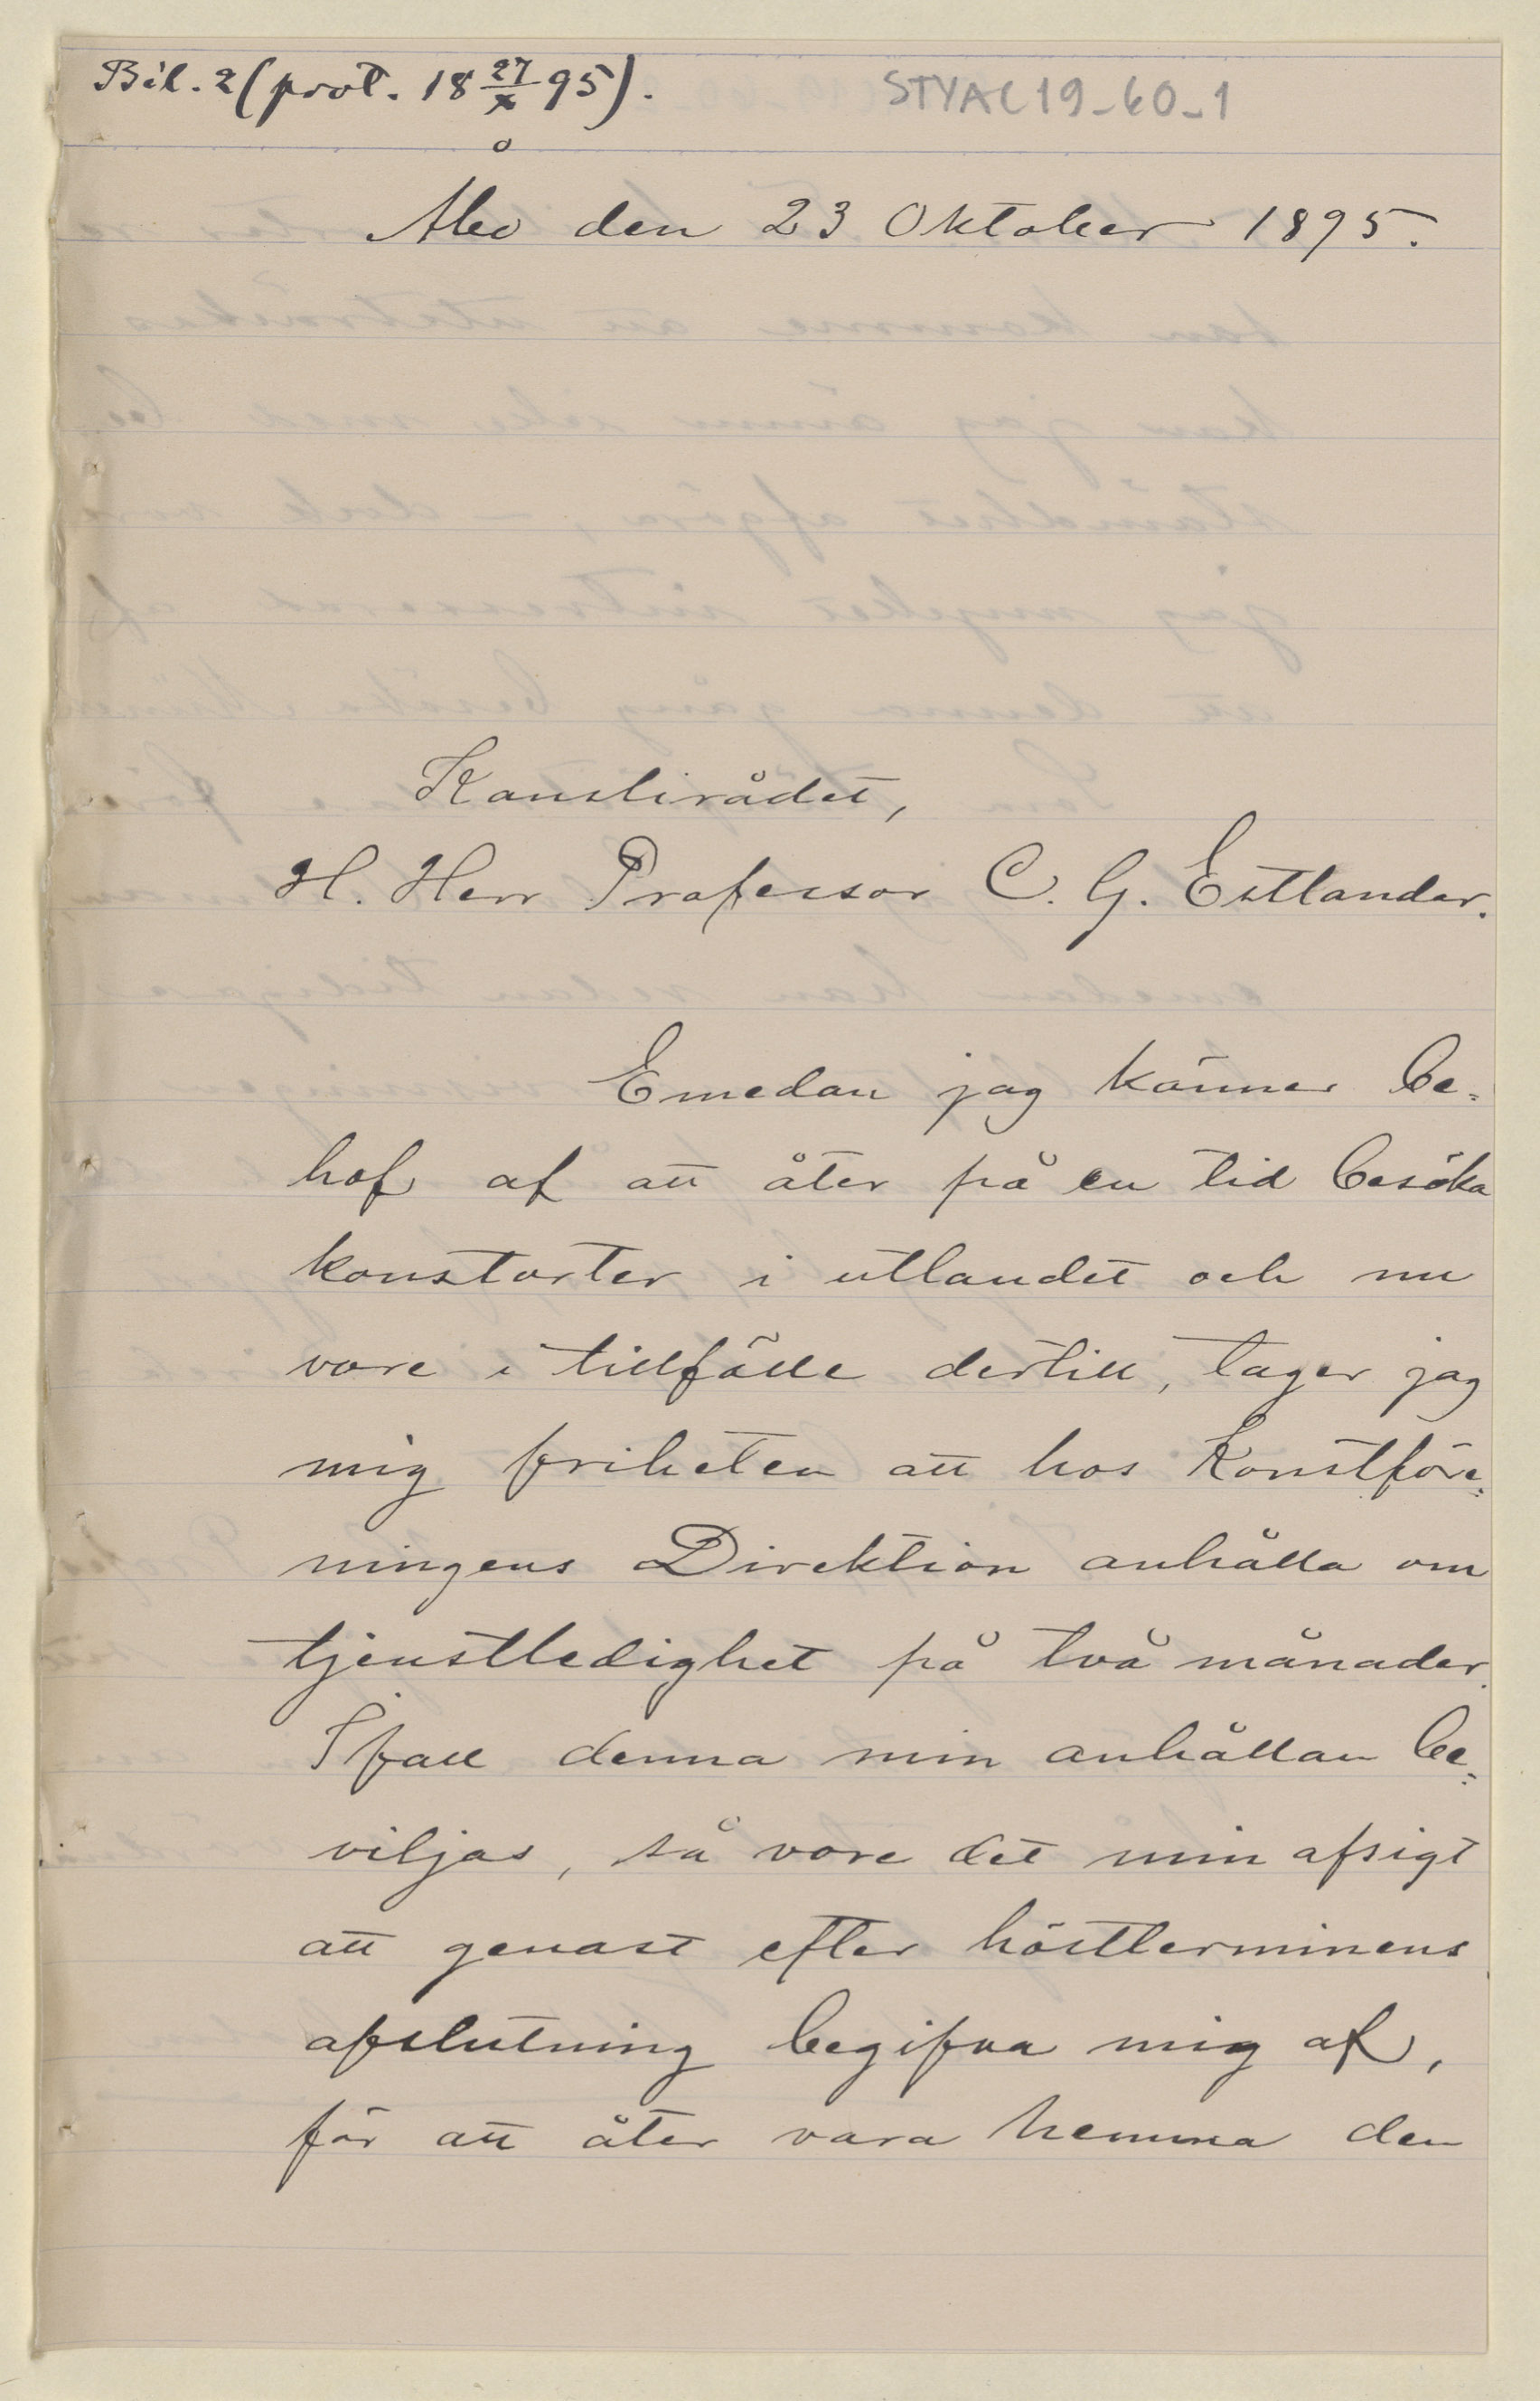 Bil. 2 (prot. 18 27/X 95).
STYA C19_60_1
Åbo den 23 Oktober 1895.
Kanslirådet,
H. Herr Professor C. G. Estlander.
Emedan jag känner be-
hof af att åter på en tid besöka
konstorter i utlandet och nu
vore i tillfälle dertill, tager jag
mig friheten att hos Konstföre-
ningens Direktion anhålla om
tjenstledighet på två månader.
Ifall denna min anhållan be-
viljas, så vore det min afsigt
att genast efter höstterminens
afslutning begifva mig af,
för att åter vara hemma den